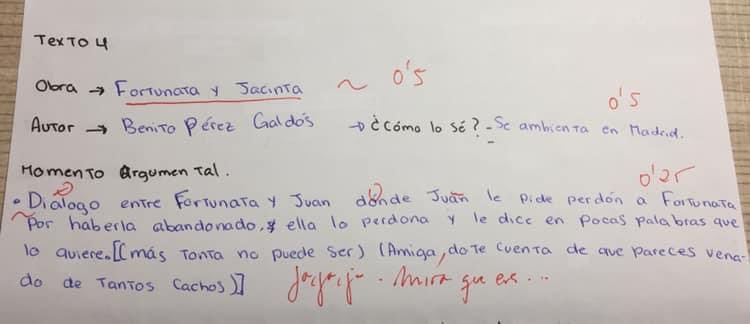 Texto 4
Obra → Fortunata y Jacinta ~ 0'5
0'5
Autor → Benito Pérez Galdós → ¿Cómo lo sé? - Se ambienta en Madrid.
Momento Argumental. 0'25
• Diálogo entre Fortunata y Juan dónde Juan le pide perdón a Fortunata
por haberla abandonado, y ella lo perdona y le dice en pocas palabras que
lo quiere. [(más tonta no puede ser) (Amiga, date cuenta de que pareces vena-
do de tantos cachos)]
Jajaja. Mira que eres...